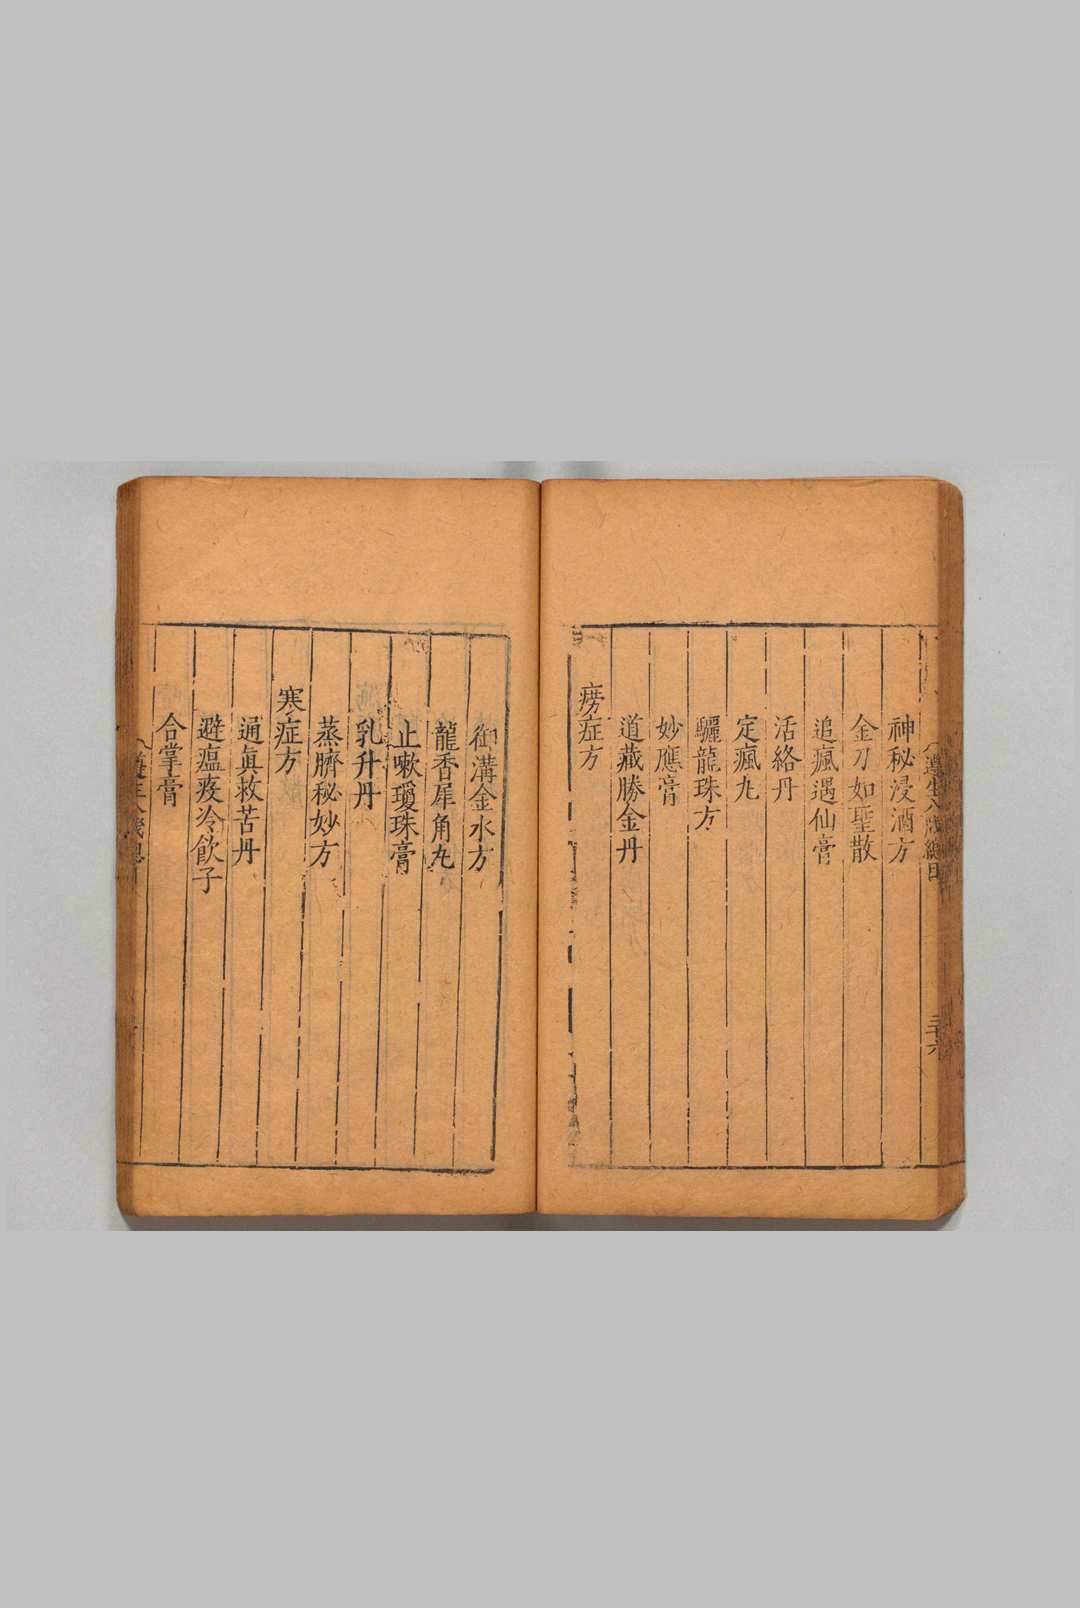 遵生八牋總目
三十六
神秘浸酒方
金刀如聖散
追瘋遇仙膏
活絡丹
定瘋丸
驪龍珠方
妙應膏
道藏勝金丹
癆症方
御溝金水方
龍香犀角丸
止嗽瓊珠膏
乳升丹
蒸臍秘妙方
寒症方
通眞救苦丹
避瘟疫冷飲子
合掌膏